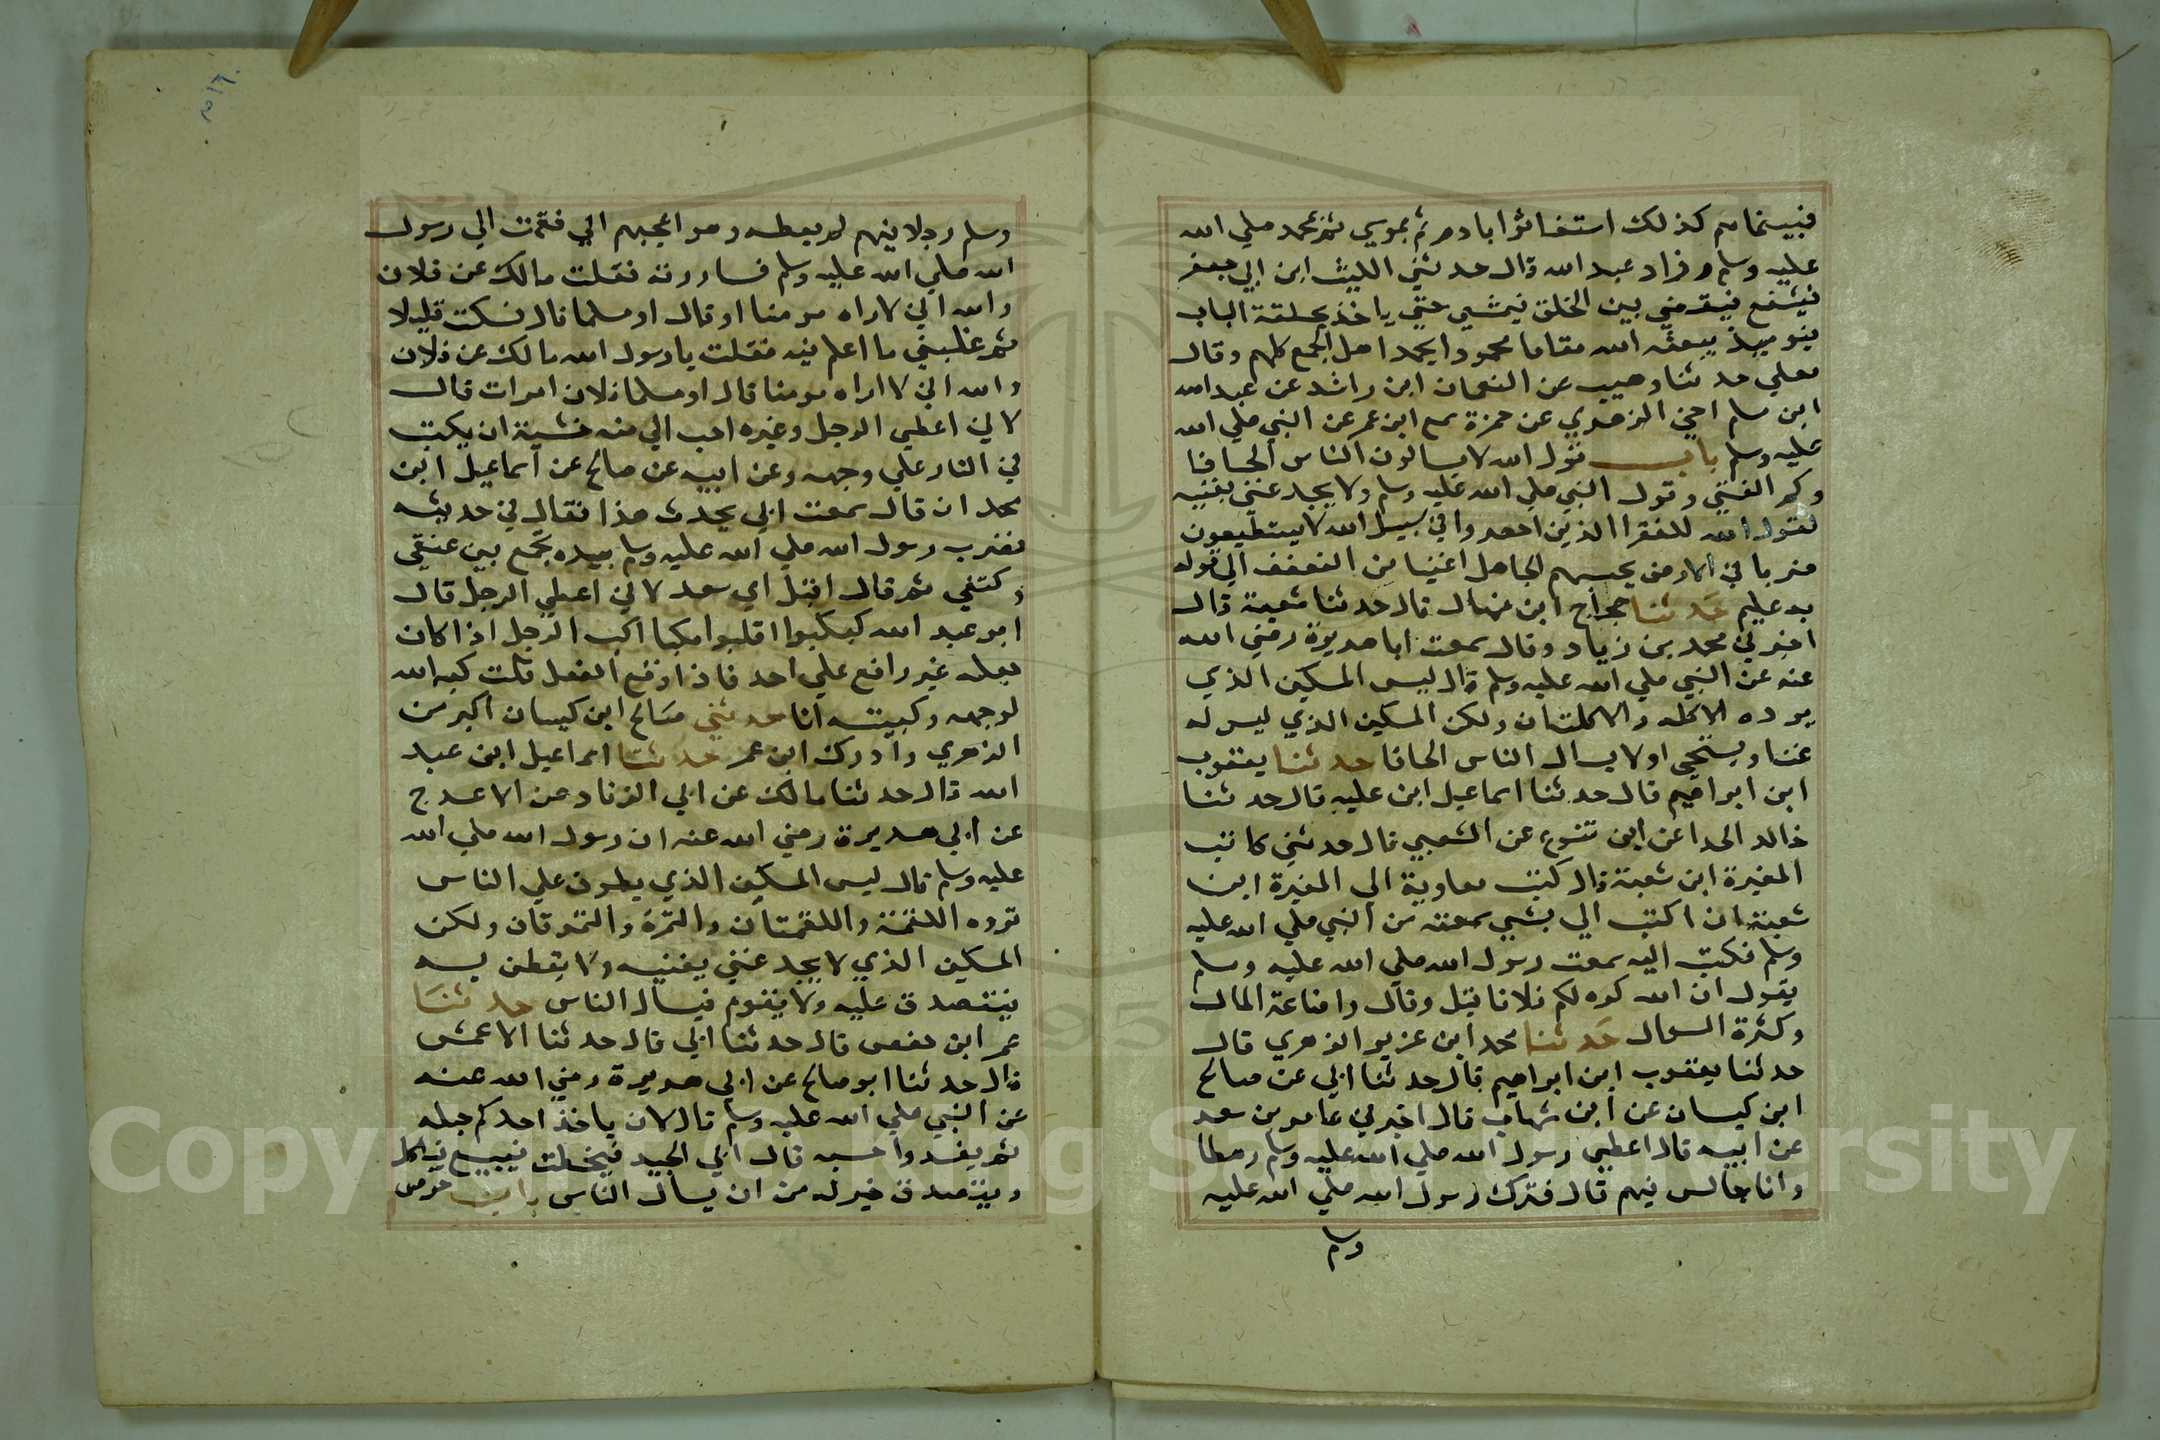 فبينماهم كذلك استغاثوا بادم ثم بموسي ثم بمحمد صلي الله
عليه وسلم وزاد عبد الله قال حدثني الليث ابن ابي جعفر
فيشفع ليقضي بين الخلق فيمشي حتي ياخذ بحلقة الباب
فيوميذ يبعثه الله مقاما محمودا يحمده اهل الجمع كلهم وقال
معلي حدثنا وهيب عن النعمان ابن راشد عن عبد الله
ابن مسلم اخي الزهري عن حمزة سمع ابن عمر عن النبي صلي الله
عليه وسلم باب قول الله لا يسالون الناس الحافا
وكم الغني وقول النبي صلي الله عليه وسلم ولا يجد غني يغنيه
لقول الله للفقرا الذين احصروا في سبيل الله لا يستطيعون
ضربا في الارض يحسبهم الجاهل اغنيا من التعفف الي قوله
به عليم حدثنا حجاج ابن منهال قال حدثنا شعبة قال
اخبرني محمد بن زياد وقال سمعت ابا هريرة رضي الله
عنه عن النبي صلي الله عليه وسلم قال ليس المسكين الذي
يرده الاكله والاكلتان ولكن المسكين الذي ليس له
غنا ويستحي اولا يسال الناس الحافا حدثنا يعقوب
ابن ابراهيم قال حدثنا اسماعيل ابن عليه قال حدثنا
خالد الحدا عن ابن عن الشعبي قال حدثني كاتب
المغيرة ابن شعبة قال كتب معاوية الى المغيرة ابن
شعبة ان اكتب الي بشي سمعته من النبي صلي الله عليه
وسلم فكتب اليه سمعت رسول الله صلي الله عليه وسلم
يقول ان الله كره لكم ثلاثا قيل وقال واضاعة المال
وكثرة السوال حدثنا محمد ابن غرير الزهري قال
حدثنا يعقوب ابن ابراهيم قال حدثنا ابي عن صالح
ابن كيسان عن ابن شهاب قال اخبرني عامر بن سعد
عن ابيه قال اعطي رسول الله صلي الله عليه وسلم رهطا
وانا جالس فيهم قال فترك رسول الله صلي الله عليه
وسلم
وسلم رجلا فيهم لم يعطه وهو اعجبهم الي فقمت الي رسول
الله صلي الله عليه وسلم فساررته فقلت مالك عن فلان
والله اني لاراه مومنا او قال او مسلما قال فسكت قليلا
ثم غلبني ما اعلم فيه فقلت يا رسول الله مالك عن فلان
والله اني لااراه مومنا قال او مسلما ثلاث مرات قال
لاني اعطي الرجل وغيره احب الي منه خشية ان يكب
في النار علي وجهه وعن ابيه عن صالح عن اسماعيل ابن
محمد انه قال سمعت ابي يحدث هذا فقال في حديثه
فضرب رسول الله صلي الله عليه وسلم بيده فجمع بين عنقي
وكتفي ثم قال اقبل اي سعد لاني اعطي الرجل قال
ابو عبد الله كبكبوا اقلبوا مكبا اكب الرجل اذا كان
فعله غير واقع علي احد فاذا وقع الفعل قلت كبه الله
لوجهه وكبيته انا حدثني صالح ابن كيسان اكبر من
الزهري وادرك ابن عمر حدثنا اسماعيل ابن عبد
الله قال حدثنا مالك عن ابي الزناد عن الاعرج
عن ابي هريرة رضي الله عنه ان رسول الله صلي الله
عليه وسلم قال ليس المسكين الذي يطوف علي الناس
ترده اللقمة واللقمتان والتمرة والتمرتان ولكن
المسكين الذي لا يجد غني يغنيه ولا يفطن به
فيتصدق عليه ولا يقوم فيسال الناس حدثنا
عمر ابن حفص قال حدثنا ابي قال حدثنا الاعمش
قال حدثنا ابو صالح عن ابي هريرة رضي الله عنه
عن النبي صلي الله عليه وسلم قال لان ياخذ احدكم حبله
ثم يغدوا حسبه قال الي الجبل فيحطب فيبيع فياكل
ويتصدق خير له من ان يسال الناس باب خرص
Copyright © King Saud University
1957